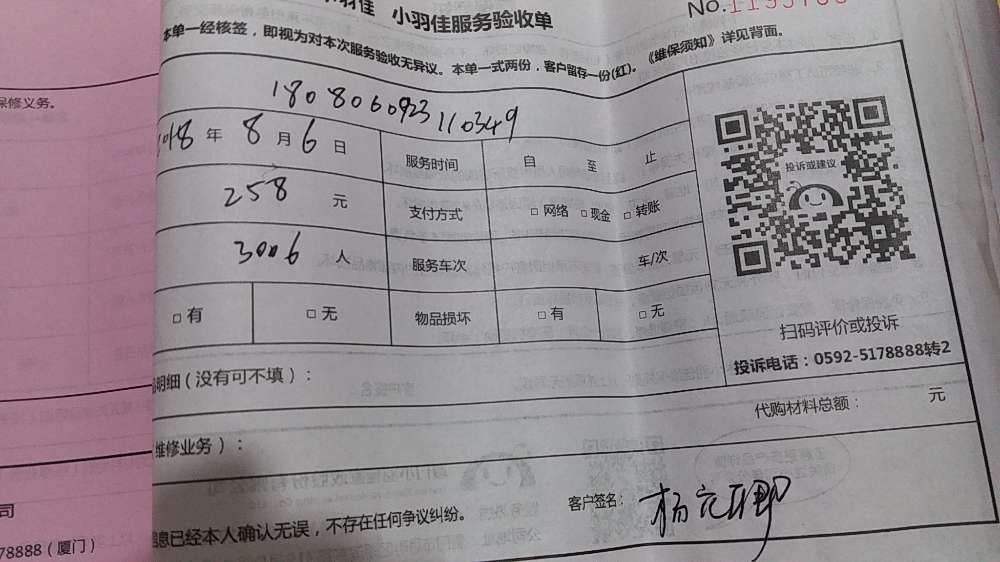 小羽佳服务验收单
No.
本单一经核签，即视为对本次服务验收无异议。本单一式两份，客户留存一份(红)。《维保须知》详见背面。
保修义务。
180806092311 0349
2018 年 8 月 6 日 服务时间 自 至 止
投诉或建议
258 元 支付方式 □ 网络 □ 现金 □ 转账
3006 人 服务车次 车/次
□ 有 □ 无 物品损坏 □ 有 □ 无
扫码评价或投诉
投诉电话：0592-5178888转2
明细（没有可不填）：
代购材料总额： 元
维修业务）：
客户签名：
息已经本人确认无误，不存在任何争议纠纷。
司
78888（厦门）